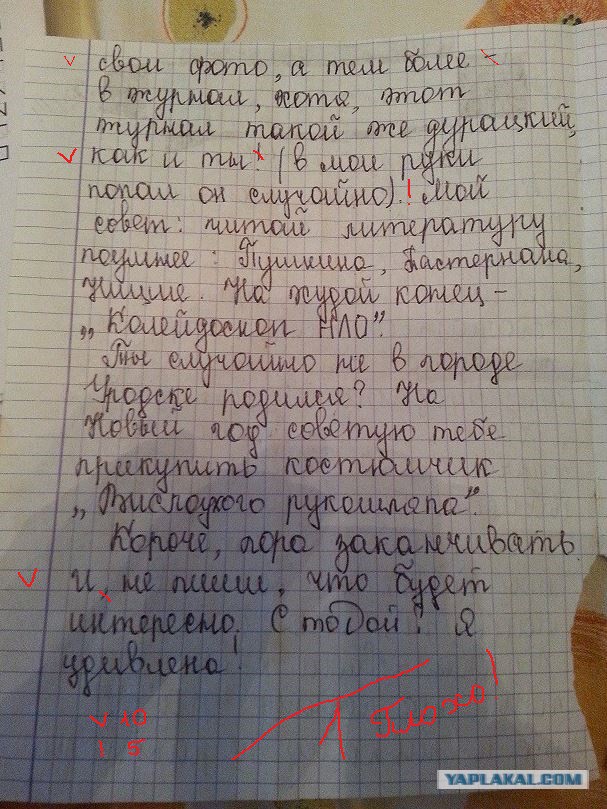 свои фото, а тем более –
в журнал, хотя, этот
журнал такой же дурацкий,
как и ты! (в мои руки
попал он случайно).! Мой
совет: читай литературу
поумнее: Пушкина, Пастернака,
Ницше. На худой конец –
„Колейдоскоп НЛО”.
Ты случайно не в городе
Уродске родился? На
Новый год советую тебе
прикупить костюмчик
„Вислоухого рукошлапа”.
Короче, пора заканчивать
и, не пиши, что будет
интересно. С тобой! Я
удивлена!
V 10
| 5
1 Плохо!
YAPLAKAL.COM